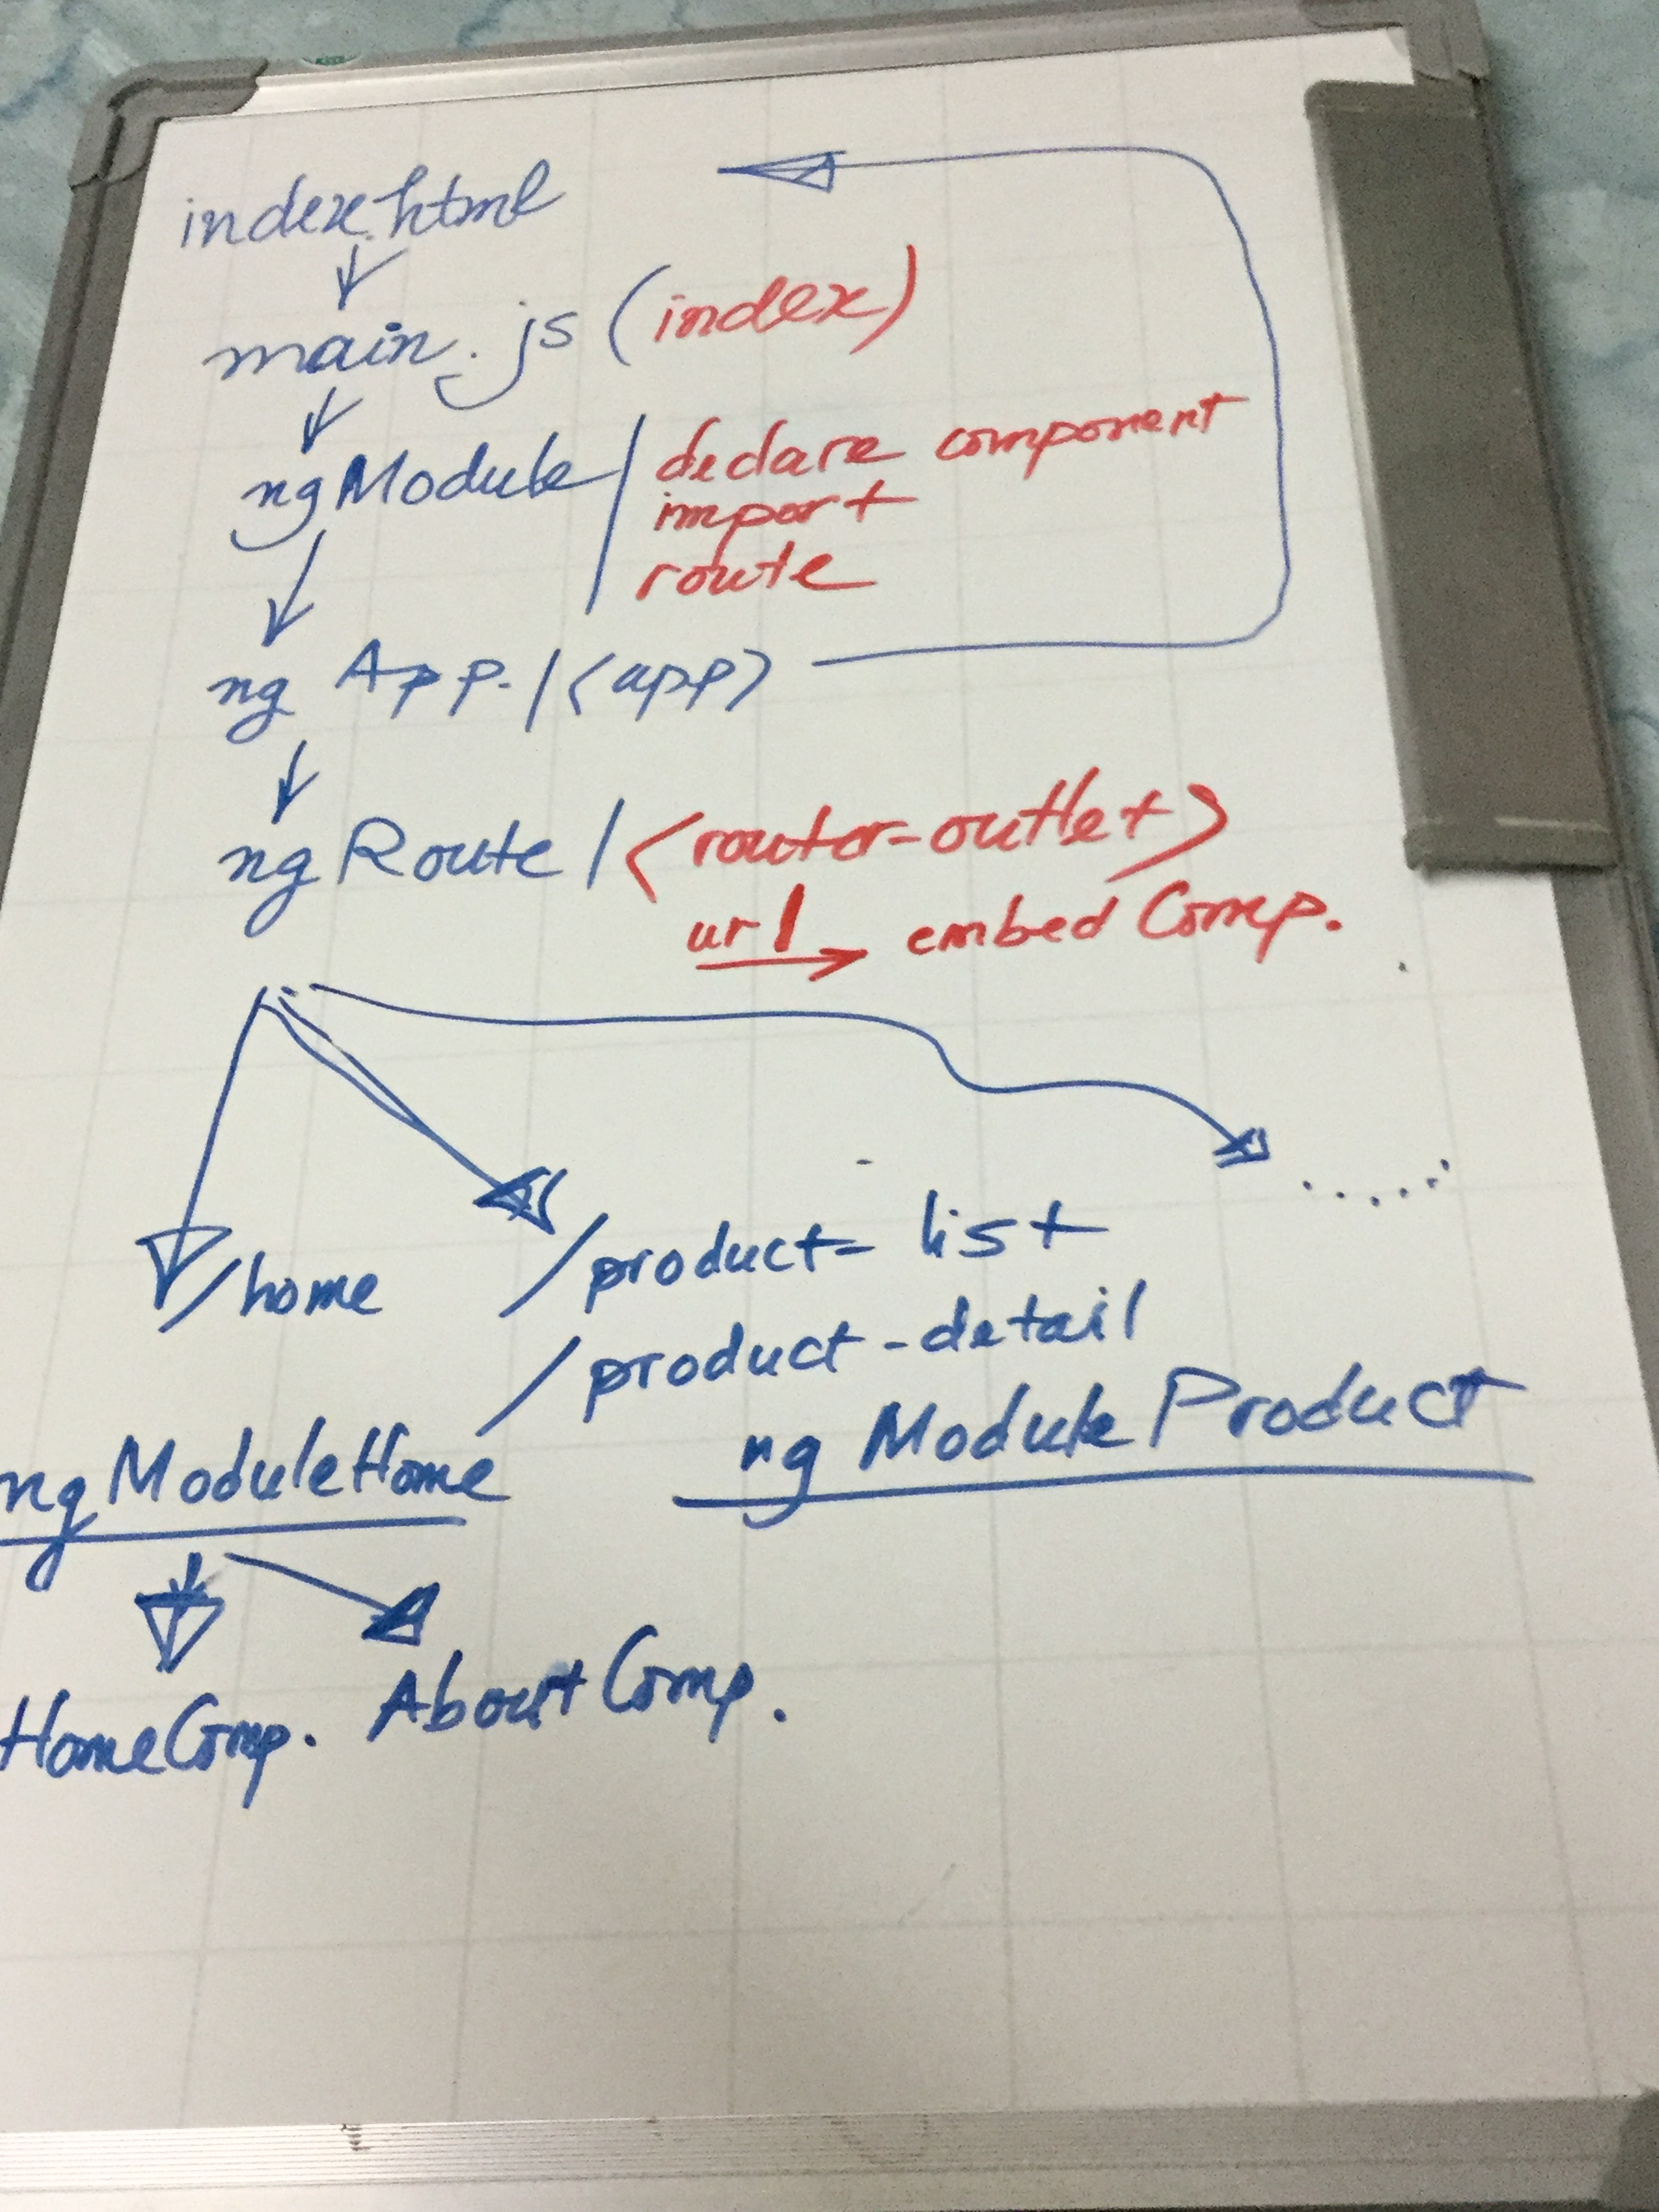 index.html
main.js (index)
ngModule | declare component
import
route
ng App. | <app>
ngRoute | <router-outlet>
url → embed Comp.
/home
/product-list
.....
/product-detail
ngModuleHome
ngModuleProduct
HomeComp. AboutComp.